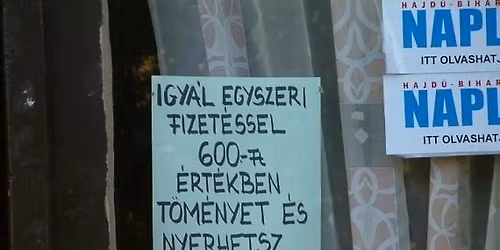 IGYÁL EGYSZERI
FIZETÉSSEL
600-Ft
ÉRTÉKBEN
TÖMÉNYET ÉS
NYERHETSZ
HAJDÚ-BIHAR
NAPL
ITT OLVASHAT
HAJDÚ-BIHAR
NAPL
ITT OLVASHAT